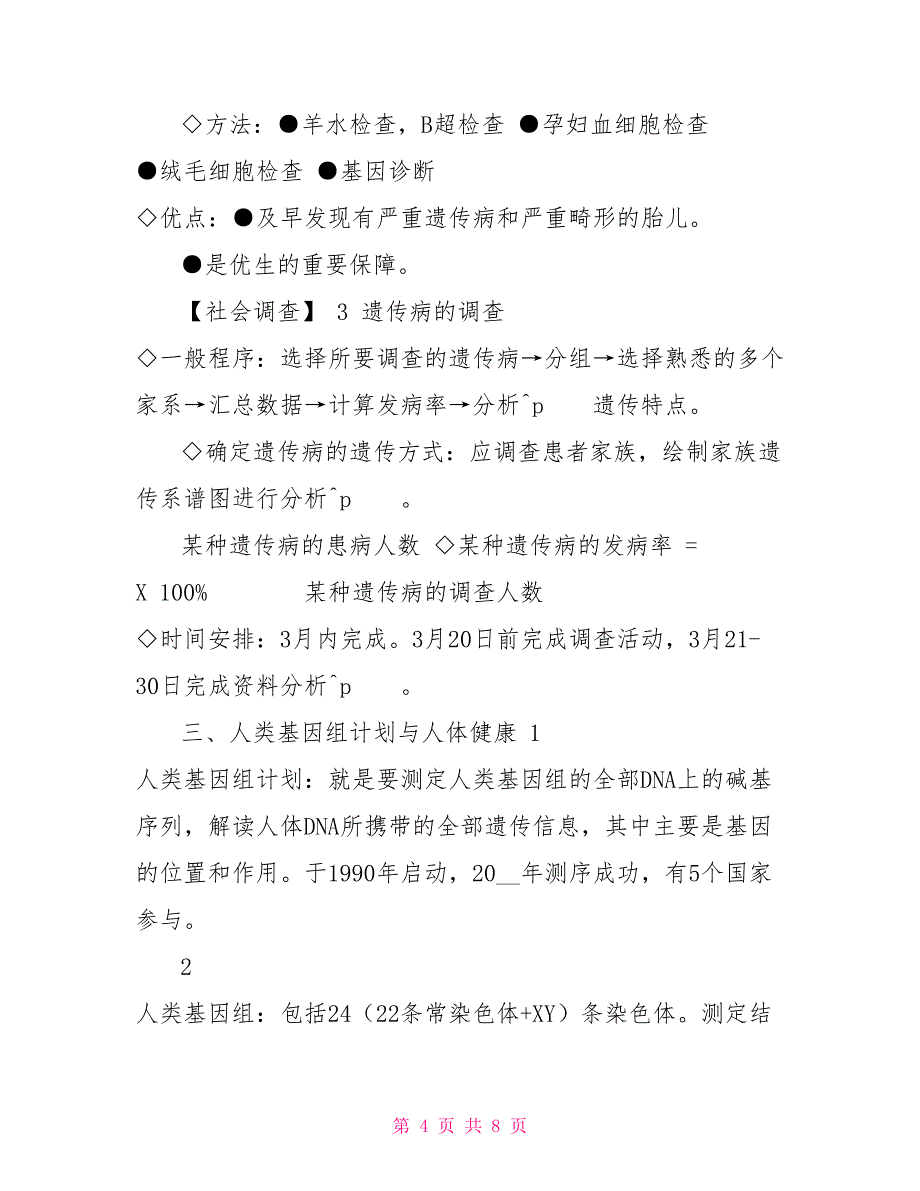 ◇方法：●羊水检查，B超检查 ●孕妇血细胞检查
●绒毛细胞检查 ●基因诊断
◇优点：●及早发现有严重遗传病和严重畸形的胎儿。
●是优生的重要保障。
【社会调查】 3 遗传病的调查
◇一般程序：选择所要调查的遗传病→分组→选择熟悉的多个
家系→汇总数据→计算发病率→分析^p 遗传特点。
◇确定遗传病的遗传方式：应调查患者家族，绘制家族遗
传系谱图进行分析^p 。
某种遗传病的患病人数 ◇某种遗传病的发病率 =
X 100% 某种遗传病的调查人数
◇时间安排：3月内完成。3月20日前完成调查活动，3月21-
30日完成资料分析^p 。
三、人类基因组计划与人体健康 1
人类基因组计划：就是要测定人类基因组的全部DNA上的碱基
序列，解读人体DNA所携带的全部遗传信息，其中主要是基因
的位置和作用。于1990年启动，20__年测序成功，有5个国家
参与。
2
人类基因组：包括24（22条常染色体+XY）条染色体。测定结
第 4 页 共 8 页